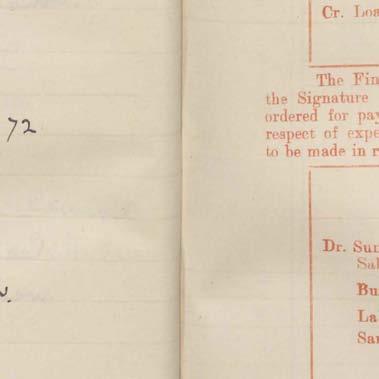 72
Cr. Loa
The Fin
the Signature
ordered for pay
respect of expe
to be made in r
Dr. Sun
Sal
Bu
La
Sar